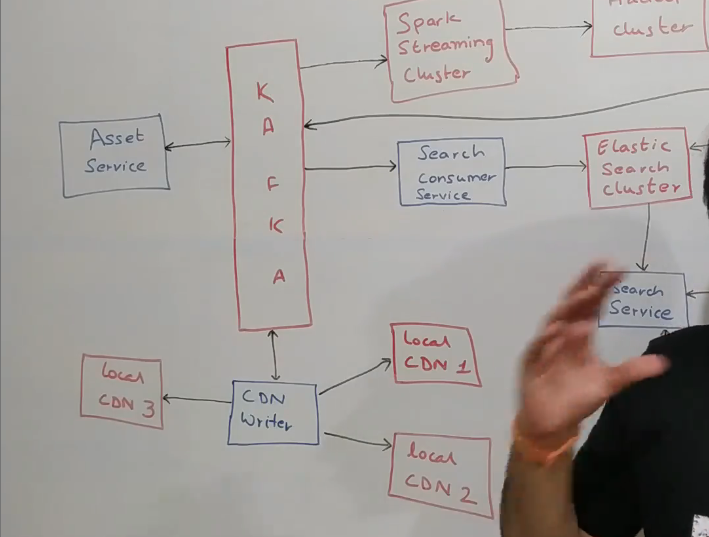 Spark
Streaming
Cluster
cluster
K
A
F
K
A
Asset
Service
Search
Consumer
Service
Elastic
Search
cluster
Search
Service
local
CDN 1
local
CDN 3
CDN
Writer
local
CDN 2